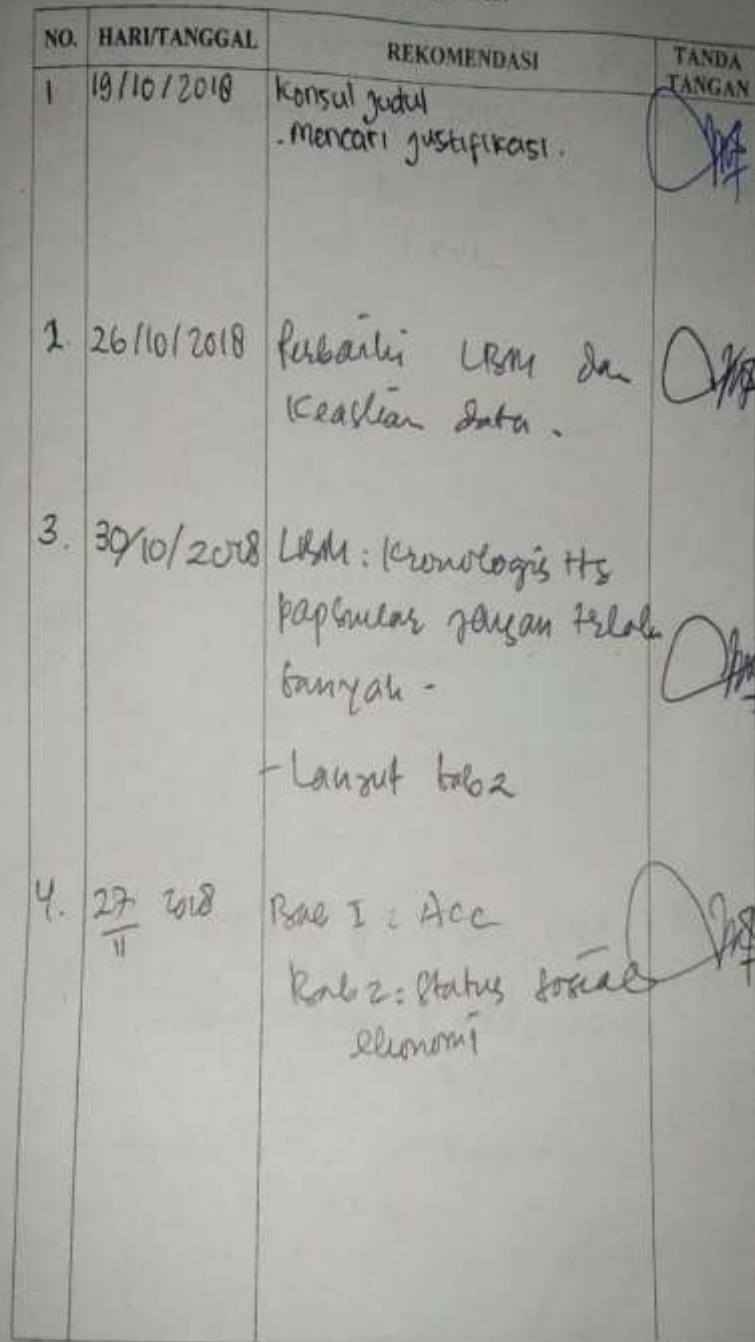 NO. HARI/TANGGAL REKOMENDASI TANDA TANGAN
1 19/10/2018 Konsul judul
- Mencari justifikasi.
2. 26/10/2018 Perbaiki LBM dan
Keaslian data.
3. 30/10/2018 LBM: Kronologis Hs
papsmear jangan terlalu
banyak -
- Lanjut bab 2
4. 27/11 2018 Bab I : Acc
Bab 2: Status sosial
ekonomi